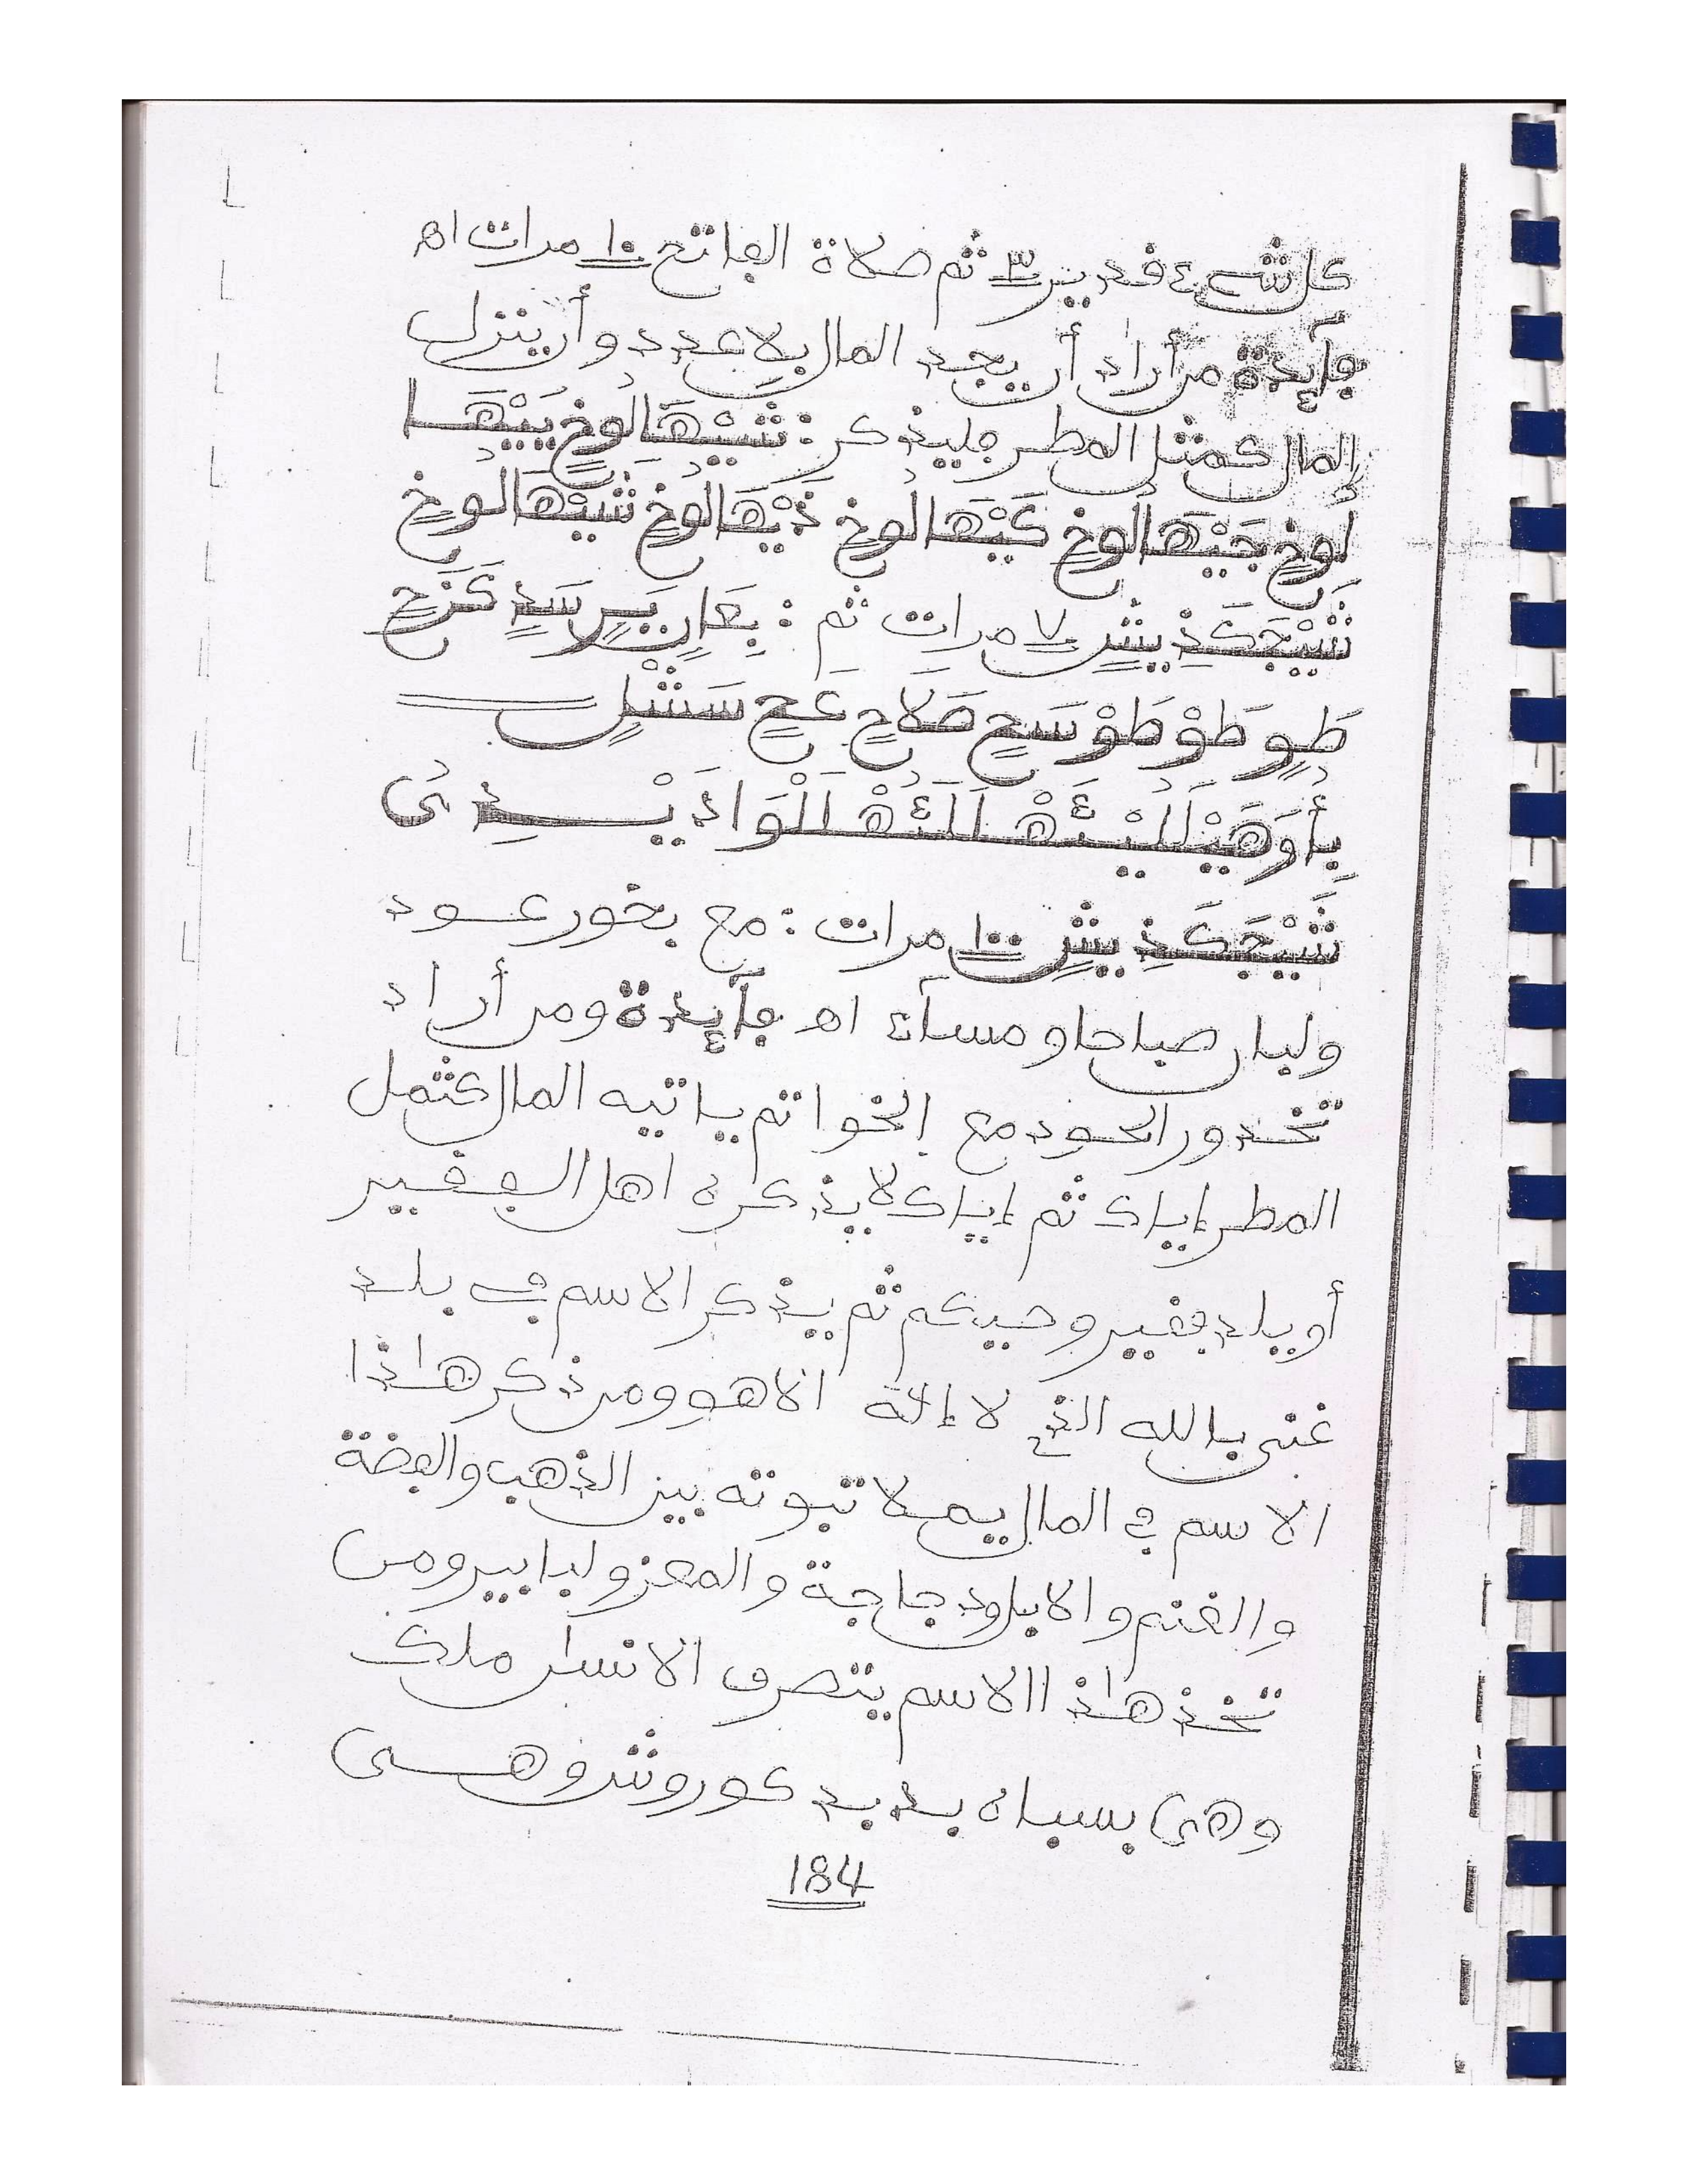 كل شيء قدير ٣ ثم صلاة الفاتح ١٠ مرات اه
فآئدة من أراد أن يجد المال بلا عدد وأن ينزل
المال كمثل المطر فليذكر : شَيْهَالُوخٍ يَيْهَا
لُوخٍ جَيْهَالُوخٍ كَيْهَالُوخٍ ذَيْهَالُوخٍ شَيْهَالُوخٍ
شَيْجَكَذِيشٍ ٧ مرات ثم :
طَوٍ طَوْ طَوْ سَحٍ صَلَاحٍ عَحٍ سَشْلٍ
شَيْجَكَذِيشٍ ١٠٠ مرات : مع بخور عود
ولبان صباحا و مساء اه فآئدة ومن أراد
تخذ ور العود مع الخواتم ياتيه المال كثمل
المطر إياك ثم إياك لا يذكره اهل الفقير
أو بلد فقير وحيكم ثم يذكر الاسم في بلد
غنى بالله الذي لا إله الا هو ومن ذكر هاذا
الاسم في المال يملا تبوته بين الذهب والفضة
والغنم والابل ودجاجة والمعز ولبابير ومن
تخذ هاذ االاسم يتصرف الانسان ملك
وهى بسباه يد يد كوروش وهى
184